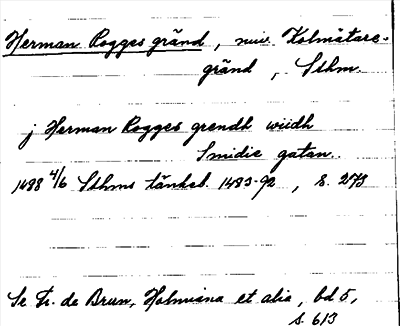 Herman Rogges gränd, nuv. Kolmätare-
gränd, Sthm.
j Herman Rogges grendh wiidh
Smidie gatan.
1488 4/6 Sthms tänkeb. 1483-92, s. 273
Se Fr. de Brun, Holmiana et alia, bd 5,
s. 613